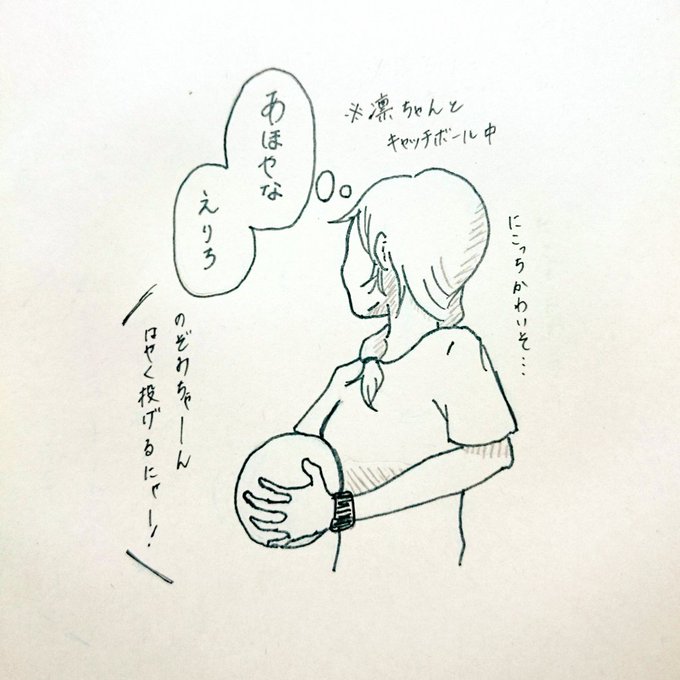 ※凛ちゃんと
キャッチボール中
あほやな
えりち
にこっちかわいそ…
のぞみちゃーん
はやく投げるにゃー！